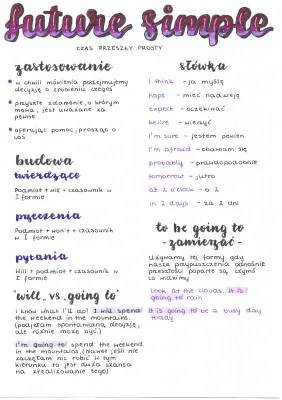 future simple
CZAS PRZESZŁY PROSTY
zastosowanie
w chwili mówienia podejmujemy
decyzję o zrobieniu czegoś
przyszłe zdarzenie, o którym
mowa, jest uważane za
pewne
oferując pomoc, prosząc o
coś
budowa
twierdzące
Podmiot + will + czasownik w
I formie
przeczenia
Podmiot + won't + czasownik
w I formie
pytania
Will + podmiot + czasownik w
I formie
"will" vs "going to"
I know what I'll do! I will spend
the weekend in the mountains.
(podjęłam spontaniczną decyzję,
ale różnie może być)
I'm going to spend the weekend
in the mountains. (Nawet jeśli nie
zaczęłam nic robić w tym
kierunku to jest duża szansa
na zrealizowanie tego)
słówka
I think - ja myślę
hope - mieć nadzieję
expect - oczekiwać
belive - wierzyć
I'm sure - jestem pewien
I'm afraid - obawiam się
probably - prawdopodobnie
tomorrow - jutro
at 2 o'clock - o 2
in 2 days - za 2 dni
to be going to
- zamierzać -
Używamy tej formy gdy
nasze przypuszczenia odnośnie
przyszłości poparte są czymś
co widzimy
Look at the clouds. It is
going to rain
It is going to be a busy day
today